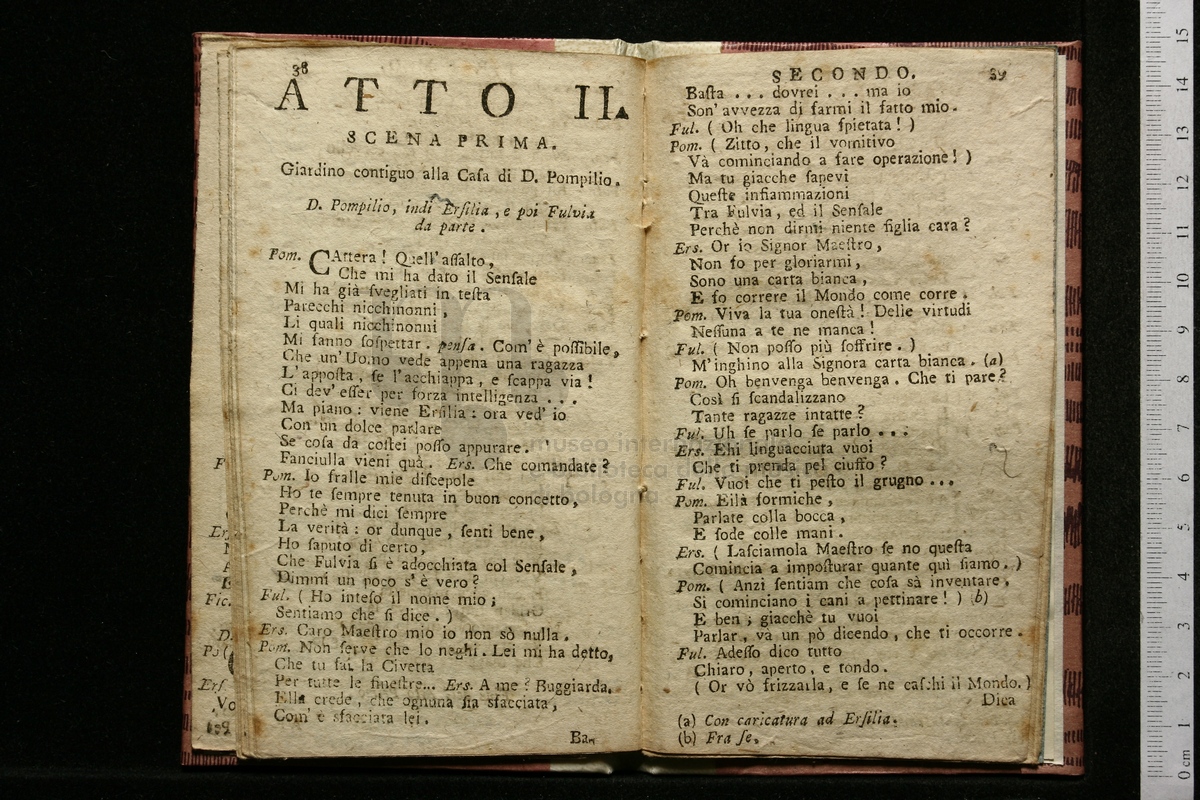 38
ATTO II.
SCENA PRIMA.
Giardino contiguo alla Caſa di D. Pompilio.
D. Pompilio, indi Erſilia, e poi Fulvia
da parte.
Pom. CAttera! Quell'aſſalto,
Che mi ha dato il Senſale
Mi ha già ſvegliati in teſta
Parecchi nicchinonni,
Li quali nicchinonni
Mi fanno ſoſpettar. penſa. Com'è poſſibile,
Che un'Uomo vede appena una ragazza
L'appoſta, ſe l'acchiappa, e ſcappa via!
Ci dev'eſſer per forza intelligenza ...
Ma piano: viene Erſilia: ora ved'io
Con un dolce parlare
Se coſa da coſtei poſſo appurare.
Fanciulla vieni quà. Erſ. Che comandate?
Pom. Io fralle mie diſcepole
Ho te ſempre tenuta in buon concetto,
Perchè mi dici ſempre
La verità: or dunque, ſenti bene,
Ho ſaputo di certo,
Che Fulvia ſi è adocchiata col Senſale,
Dimmi un poco s'è vero?
Ful. (Ho inteſo il nome mio;
Sentiamo che ſi dice.)
Ers. Caro Maeſtro mio io non sò nulla.
Pom. Non ſerve che lo neghi. Lei mi ha detto,
Che tu fai la Civetta
Per tutte le fineſtre... Ers. A me? Buggiarda.
Ella crede, che ognuna ſia sfacciata,
Com'è sfacciata lei.
Ba-
SECONDO. 39
Baſta ... dovrei ... ma io
Son'avvezza di farmi il fatto mio.
Ful. (Oh che lingua ſpietata!)
Pom. (Zitto, che il vomitivo
Và cominciando a fare operazione!)
Ma tu giacche ſapevi
Queſte infiammazioni
Tra Fulvia, ed il Senſale
Perchè non dirmi niente figlia cara?
Ers. Or io Signor Maeſtro,
Non fo per gloriarmi,
Sono una carta bianca,
E ſo correre il Mondo come corre.
Pom. Viva la tua oneſtà! Delle virtudi
Neſſuna a te ne manca!
Ful. (Non poſſo più ſoffrire.)
M'inghino alla Signora carta bianca. (a)
Pom. Oh benvenga benvenga. Che ti pare?
Così ſi ſcandalizzano
Tante ragazze intatte?
Ful. Uh ſe parlo ſe parlo ...
Ers. Ehi linguacciuta vuoi
Che ti prenda pel ciuffo?
Ful. Vuoi che ti peſto il grugno ...
Pom. Eilà formiche,
Parlate colla bocca,
E ſode colle mani.
Ers. (Laſciamola Maeſtro ſe no queſta
Comincia a impoſturar quante quì ſiamo.)
Pom. (Anzi ſentiam che coſa sà inventare,
Si cominciano i cani a pettinare!) (b)
E ben; giacchè tu vuoi
Parlar, va un pò dicendo, che ti occorre.
Ful. Adeſſo dico tutto
Chiaro, aperto, e tondo.
(Or vò frizzarla, e ſe ne caſchi il Mondo.)
Dica
(a) Con caricatura ad Erſilia.
(b) Fra ſe.